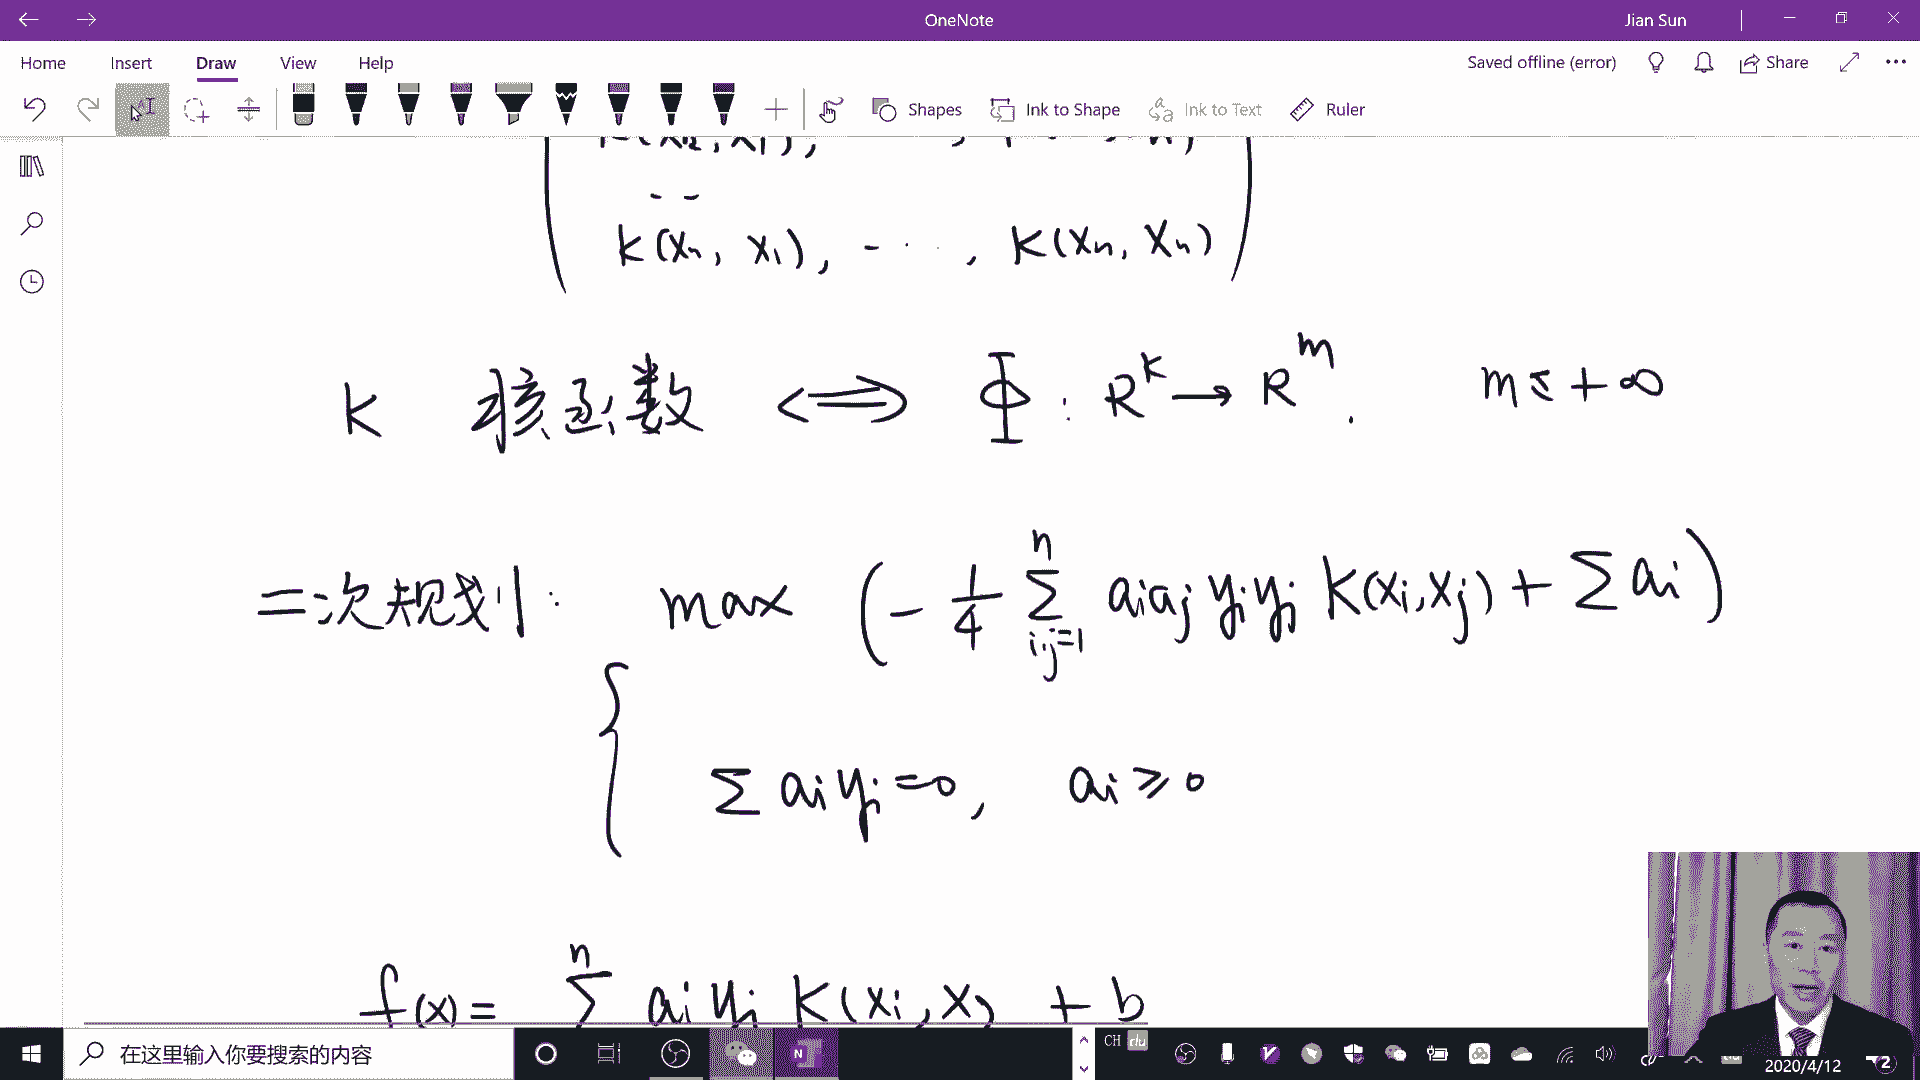 OneNote
Jian Sun
Home Insert Draw View Help
Saved offline (error) Share
Shapes Ink to Shape Ink to Text Ruler
K(x₂, x₁), ... ,
- -
K(xₙ, x₁), - · · ·, K(xₙ, xₙ)
K 核函数 ⟺ Φ : R^k → R^m. m ≤ +∞
二次规划: max (- 1/4 Σ_{i,j=1}^n aᵢaⱼ yᵢyⱼ K(xᵢ, xⱼ) + Σ aᵢ)
{ Σ aᵢ yᵢ = 0, aᵢ ≥ 0
f(x) = Σ^n aᵢ yᵢ K(xᵢ, x) + b
在这里输入你要搜索的内容
CH
2020/4/12
2